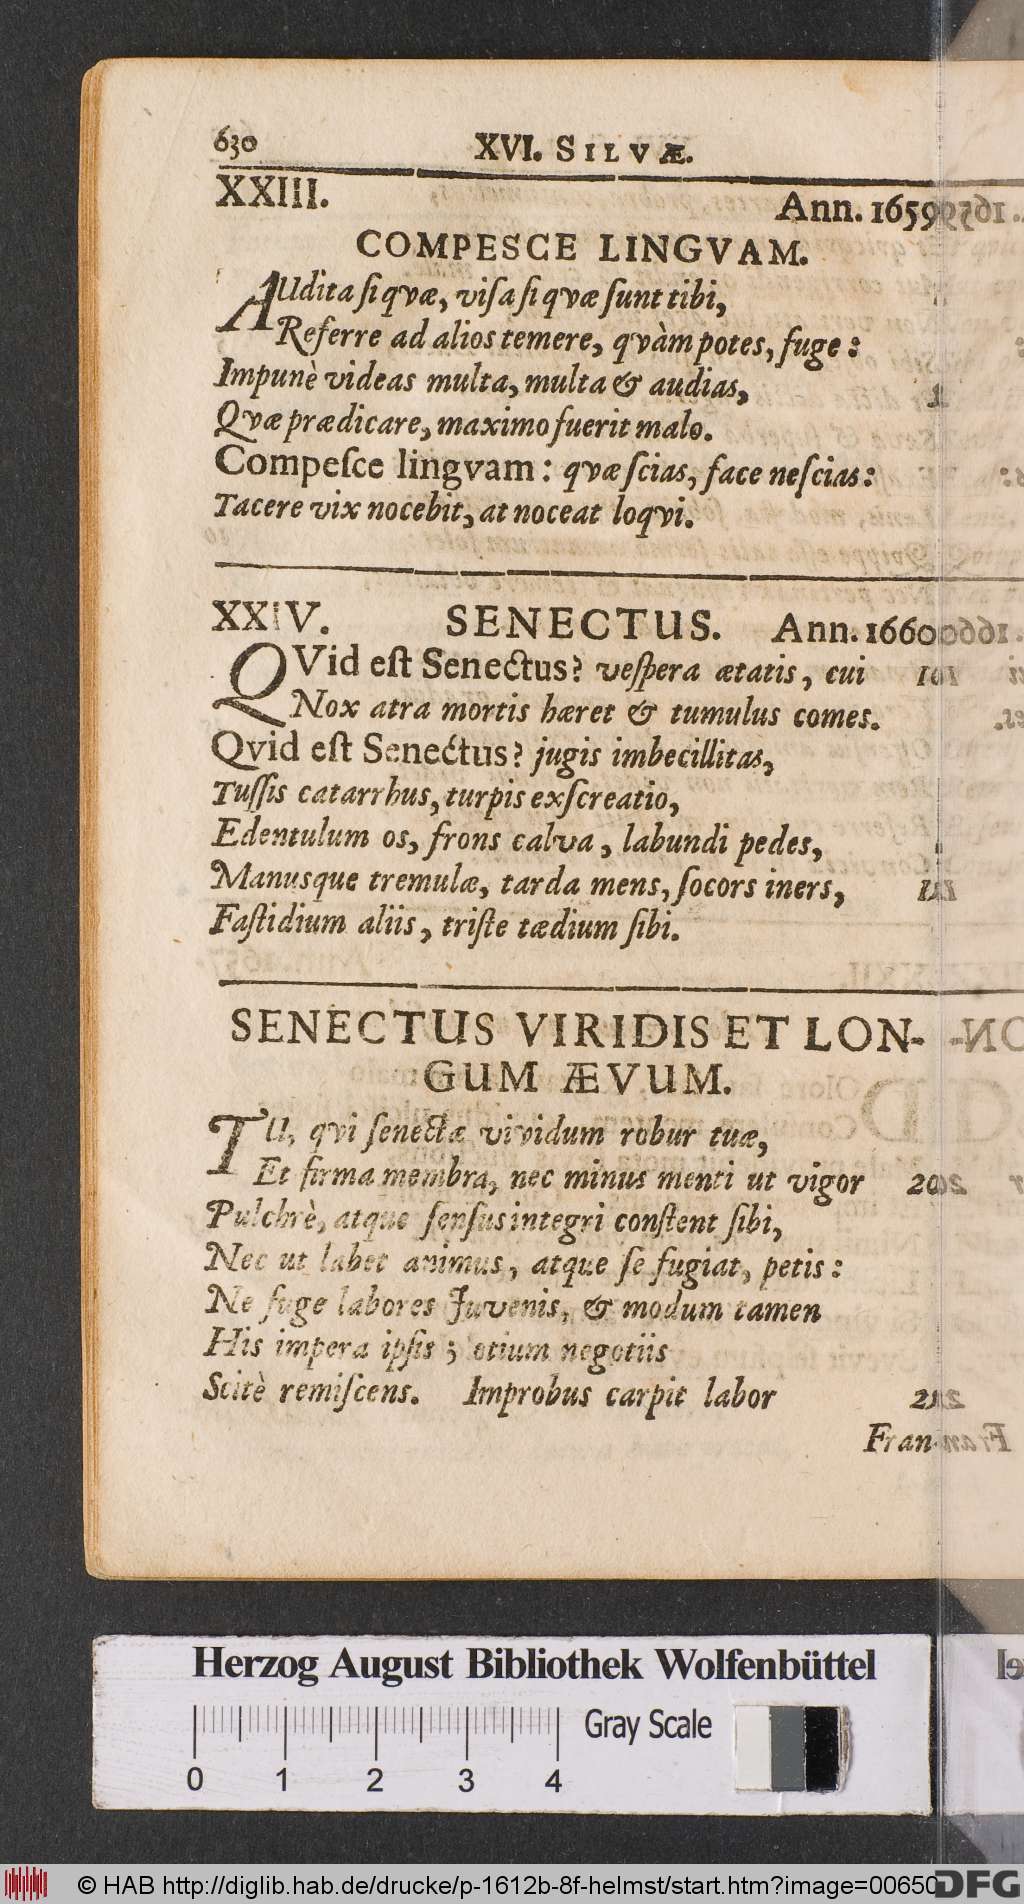 630
XVI. SILVÆ.
XXIII.
Ann. 1659
COMPESCE LINGVAM.
AUdita ſi qvæ, viſa ſi qvæ ſunt tibi,
Referre ad alios temere, qvàm potes, fuge:
Impunè videas multa, multa & audias,
Qvæ prædicare, maximo fuerit malo.
Compeſce lingvam: qvæ ſcias, face neſcias:
Tacere vix nocebit, at noceat loqvi.
XXIV. SENECTUS. Ann. 1660
QVid eſt Senectus? veſpera ætatis, cui
Nox atra mortis hæret & tumulus comes.
Qvid eſt Senectus? jugis imbecillitas,
Tuſſis catarrhus, turpis exſcreatio,
Edentulum os, frons calva, labundi pedes,
Manusque tremulæ, tarda mens, ſocors iners,
Faſtidium aliis, triſte tædium ſibi.
SENECTUS VIRIDIS ET LON-
GUM ÆVUM.
TU, qvi ſenectæ vividum robur tuæ,
Et firma membra, nec minus menti ut vigor
Pulchrè, atque ſenſus integri conſtent ſibi,
Nec ut labet animus, atque ſe fugiat, petis:
Ne fuge labores Juvenis, & modum tamen
His impera ipſis; otium negotiis
Scitè remiſcens. Improbus carpit labor
Fran-
Herzog August Bibliothek Wolfenbüttel
Gray Scale
0 1 2 3 4
© HAB http://diglib.hab.de/drucke/p-1612b-8f-helmst/start.htm?image=00650
DFG